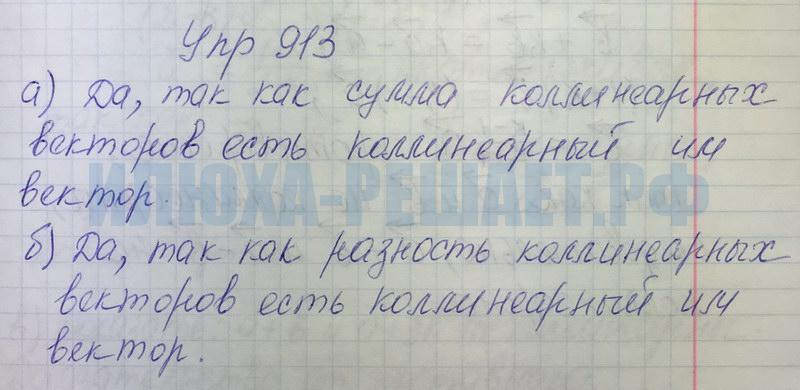 Упр 913
а) Да, так как сумма коллинеарных
векторов есть коллинеарный им
вектор.
ИЛЮХА-РЕШАЕТ.РФ
б) Да, так как разность коллинеарных
векторов есть коллинеарный им
вектор.